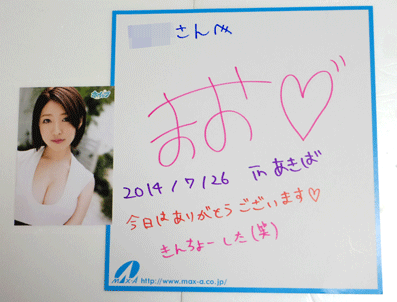 さんへ
あお♡
2014/7/26 in あきば
今日はありがとうございます♡
きんちょーした(笑)
MAX-A http://www.max-a.co.jp/